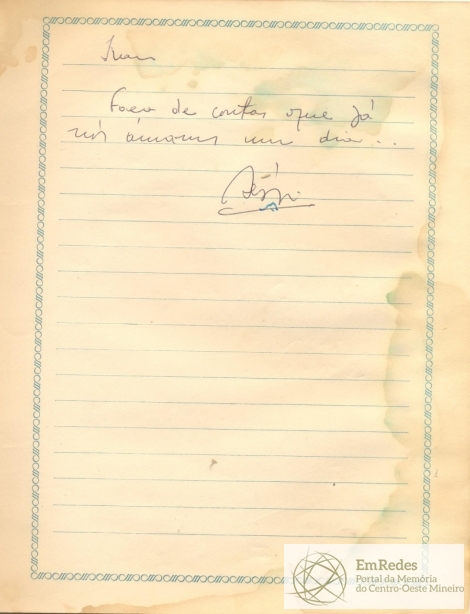 de contas que já
nós um dia...
EmRedes
Portal da Memória
do Centro-Oeste Mineiro